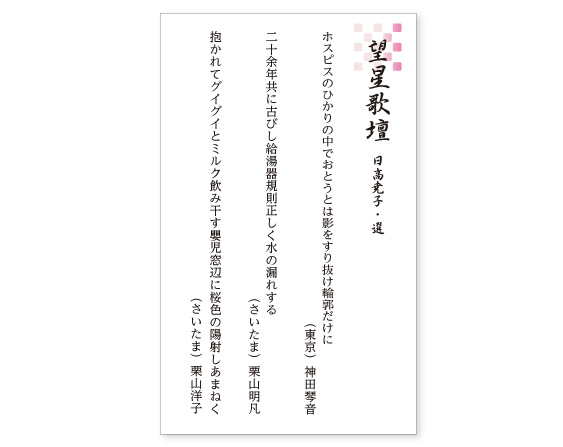 望星歌壇
日高堯子・選
ホスピスのひかりの中でおとうとは影をすり抜け輪郭だけに
（東京）神田琴音
二十余年共に古びし給湯器規則正しく水の漏れする
（さいたま）栗山明凡
抱かれてグイグイとミルク飲み干す嬰児窓辺に桜色の陽射しあまねく
（さいたま）栗山洋子